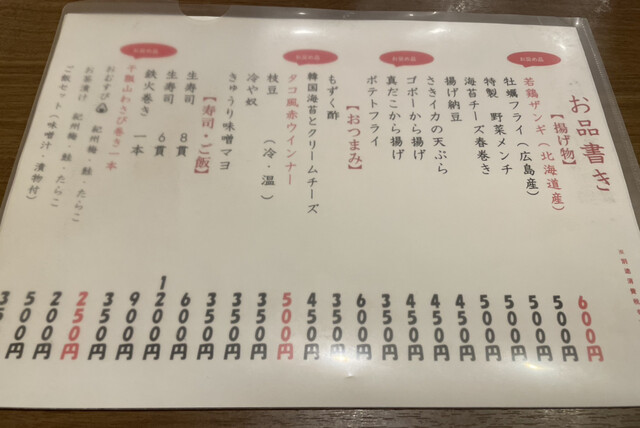 お品書き
【揚げ物】
若鶏ザンギ(北海道産)
牡蠣フライ(広島産)
特製 野菜メンチ
海苔チーズ春巻き
揚げ納豆
さきイカの天ぷら
ゴボーから揚げ
真だこから揚げ
ポテトフライ
【おつまみ】
もずく酢
韓国海苔とクリームチーズ
タコ風赤ウインナー
枝豆 (冷・温)
冷や奴
きゅうり味噌マヨ
【寿司・ご飯】
生寿司 8貫
生寿司 6貫
鉄火巻き 一本
干瓢山わさび巻き一本
おむすび 紀州梅・鮭・たらこ
お茶漬け 紀州梅・鮭・たらこ
ご飯セット(味噌汁・漬物付)
お薦め品
お薦め品
お薦め品
お薦め品
600円
500円
500円
500円
450円
450円
400円
350円
600円
350円
450円
500円
350円
350円
350円
600円
1200円
900円
350円
250円
200円
500円
350円
※別途消費税